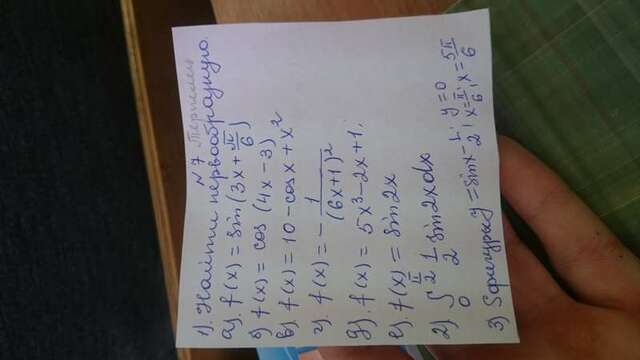 № 7
1). Найти первообразную.
а). f(x) = sin(3x + π/6)
б) f(x) = cos (4x - 3)
в). f(x) = 10 - cosx + x²
г). f(x) = - 1/(6x+1)²
д). f(x) = 5x³ - 2x + 1.
е). f(x) = sin2x
2) ∫₀^(π/2) 1/2 sin2xdx
3) Sфигуры y = sinx - 1/2; y = 0
x = π/6; x = 5π/6